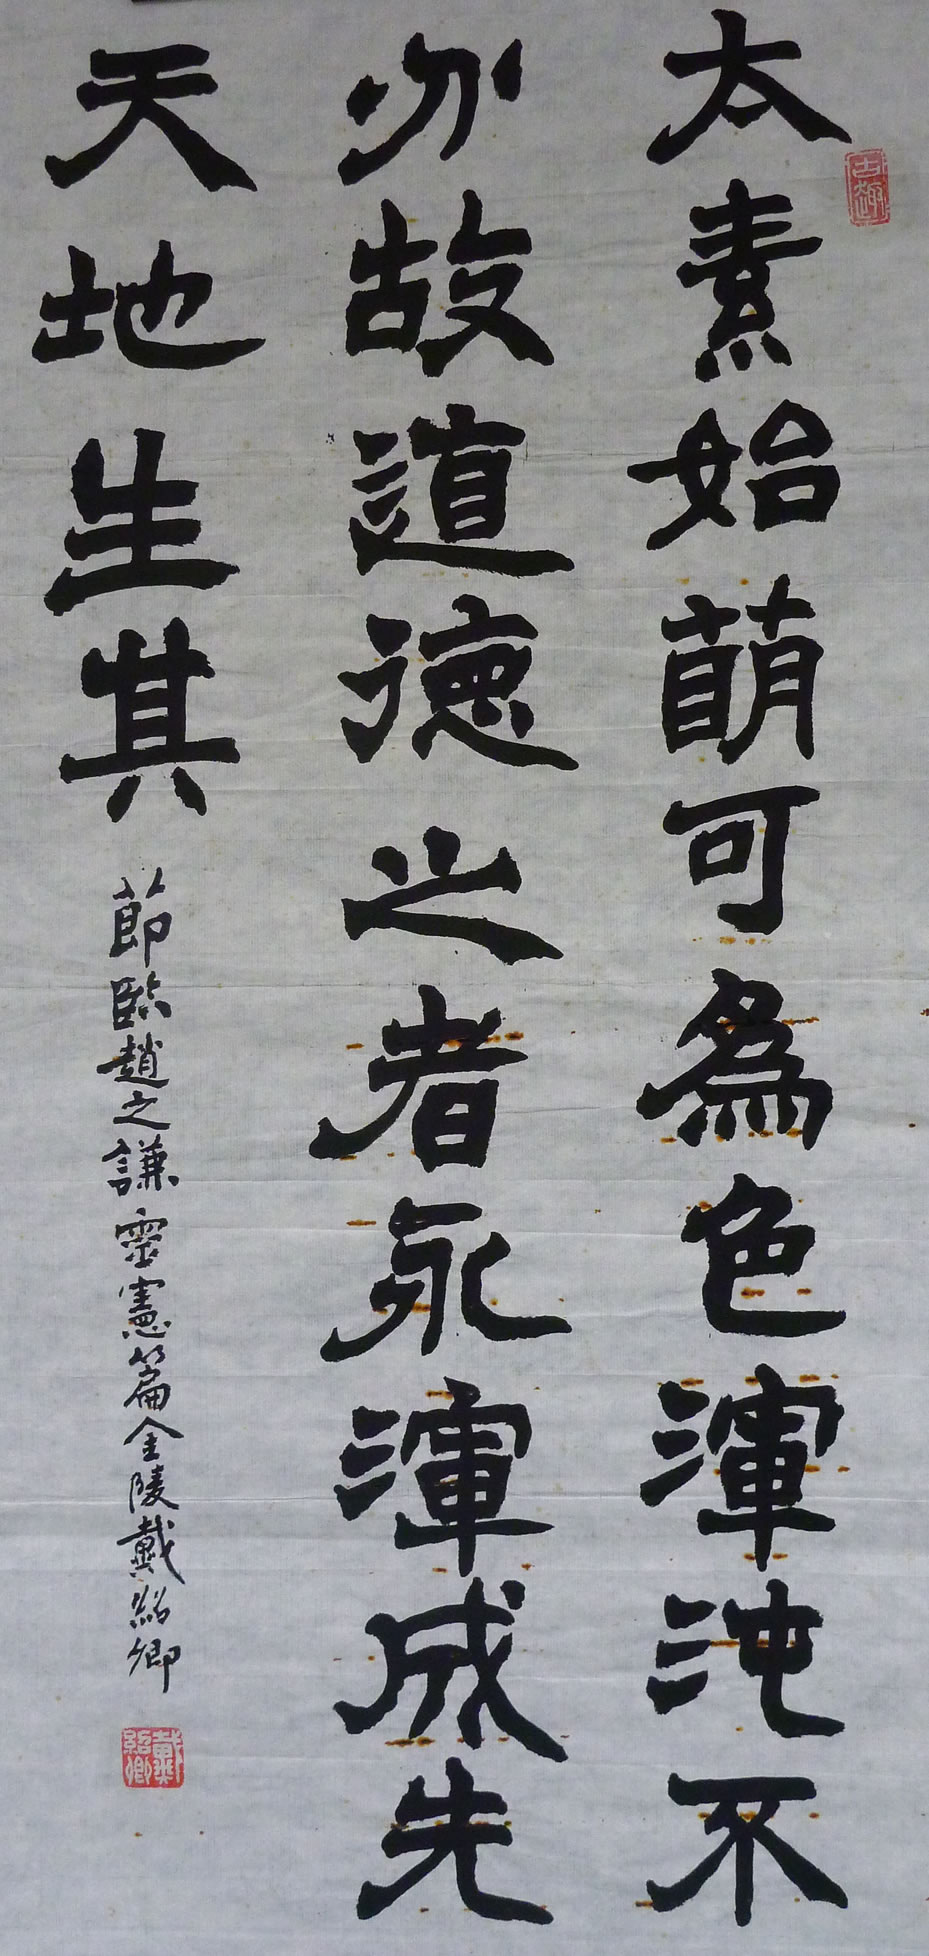 古趣
太素始萌可為色渾沌不
分故道德之者永渾成先
天地生其
節臨趙之謙靈憲篇金陵戴紹卿
戴紹卿